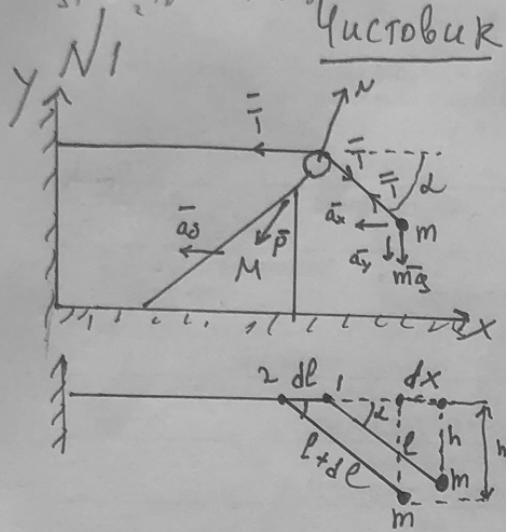 Чистовик
N1
y
N
T
T
T
α
a₀
aₓ
m
P
a_y
M
mg
x
2 dl 1 dx
α
l
h
l+dl
m
m